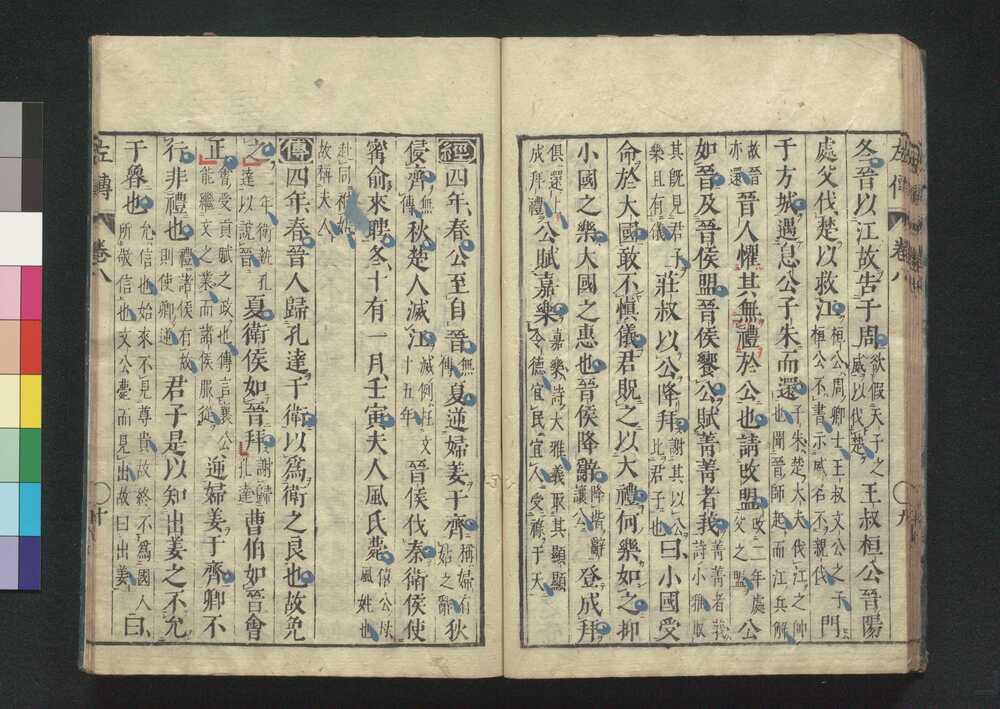 冬晉以江故告于周欲假天子之威以伐楚王叔桓公晉陽
處父伐楚以救江桓公周卿士王叔文公之子桓公不書示威名不親伐門
于方城遇息公子朱而還子朱楚大夫伐江之帥也聞晉師起而江兵解
故晉亦還晉人懼其無禮於公也請改盟改二年處父之盟公
如晉及晉侯盟晉侯饗公賦菁菁者莪菁菁者莪詩小雅取
其旣見君子樂且有儀莊叔以公降拜謝其以公比君子也曰小國受
命於大國敢不愼儀君貺之以大禮何樂如之抑
小國之樂大國之惠也晉侯降辭降階辭讓公登成拜
俱還上成拜禮公賦嘉樂嘉樂詩大雅義取其顯顯令德宜民宜人受祿于天
左傳 卷八 九
經四年春公至自晉無傳夏逆婦姜于齊稱婦有姑之辭狄
侵齊無傳秋楚人滅江滅例在文十五年晉侯伐秦衛侯使
甯俞來聘冬十有一月壬寅夫人風氏薨僖公母風姓也
赴同祔姑故稱夫人
傳四年春晉人歸孔達于衛以爲衛之良也故免
之二年衛執孔達以說晉夏衛侯如晉拜謝歸孔達曹伯如晉會
正會受貢賦之政也傳言襄公能繼文之業而諸侯服從逆婦姜于齊卿不
行非禮也禮諸侯有故則使卿逆君子是以知出姜之不允
于魯也允信也始來不見尊貴故終不爲國人所敬信也文公薨而見出故曰出姜曰
左傳 卷八 十